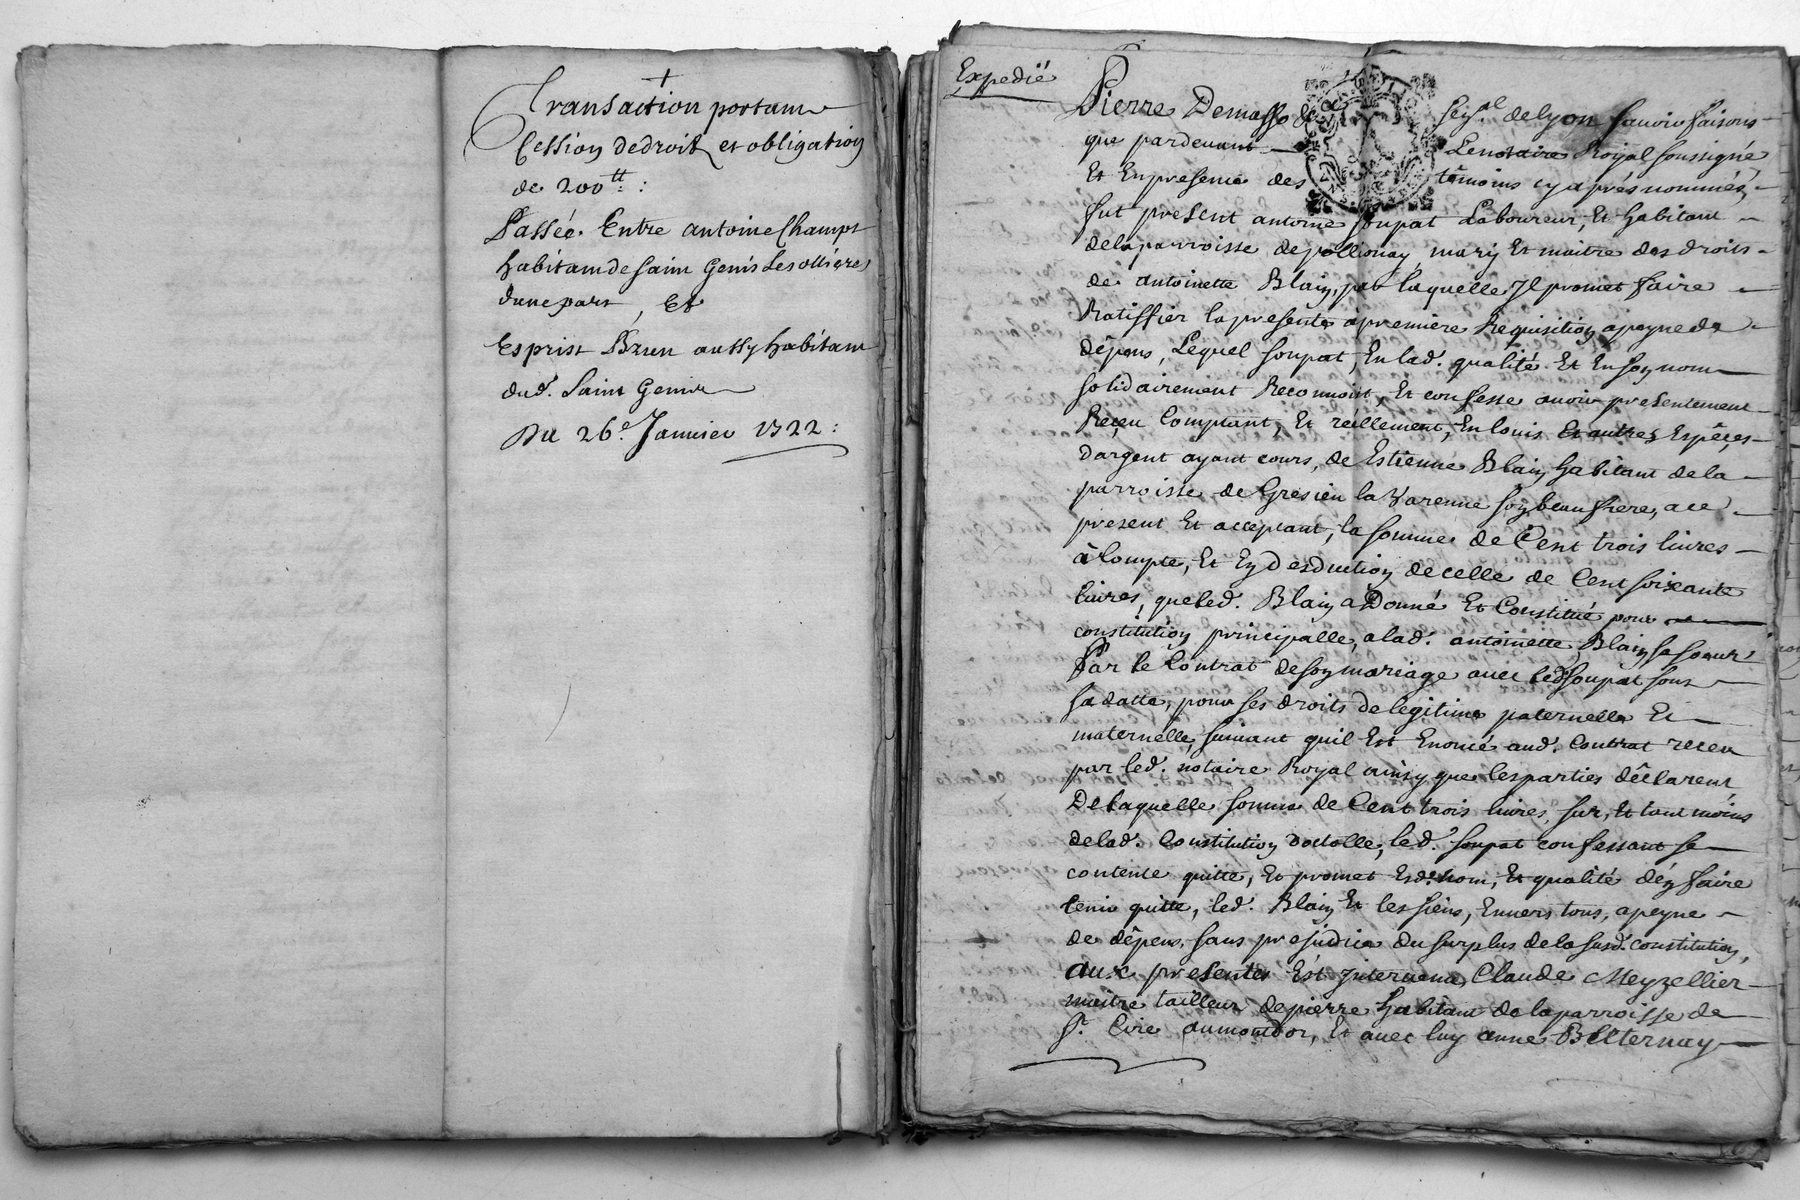 +
Transaction portant
Cession de droit et obligation
de 200tt :
Passée Entre antoine Champt
habitant de saint Genis Les ollieres
dune part, Et
Esprist Brun aussy habitant
dud. Saint Genis
Du 26.e Janvier 1722 :
Expedié
Pierre Demasso &a Seg.al de lyon scavoir faisons
que pardevant Le notaire Royal soussigné
Et En presence des témoins cy aprés nommés,
fut present antoine soupat Laboureur, Et habitant
de la parroisse de pollionay, mary Et maitre des droits
de antoinette Blain, par laquelle Il promet faire
Ratiffier la presente a premiere Requisition a peyne de
dépens, Lequel soupat, En lad. qualité Et En son nom
solidairement Reconnoist, Et confesse avoir presentement
Reçeu Comptant, Et réellement, En louis Et autres Espêces
dargent ayant cours, de Estienne Blain habitant de la
parroisse de Gresieu la Varenne son beau frere, a ce
present Et acceptant, la somme de Cent trois livres
à Compte, Et En desduction de celle de Cent soixante
livres, que led. Blain a Donné Et Constitué pour
constitution principalle, a lad. antoinette Blain sa soeur
Par le Contrat de son mariage avec led. Soupat sous
sa datte, pour ses droits de legitime paternelle Et
maternelle, suivant quil Est Enoncé aud. Contrat receu
par led. notaire Royal ainsy que les parties dêclarent
De laquelle somme de Cent trois livres, sur, Et tant moins
de lad. Constitution doctalle, led. soupat confessant se
contente quitte, Et promet Esd. nom, Et qualité dén faire
tenir quitte, led. Blain Et les siens, Envers tous, a peyne
de dêpens, sans prejudice du surplus de la susd. constitution,
aux presentes Est Intervenu Claude Meyzellier
maitre tailleur de pierre habitant de la parroisse de
St. Cire au mondor, Et avec luy anne Belternay